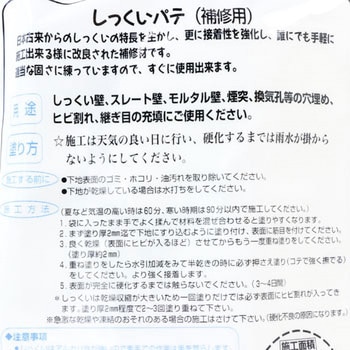 しっくいパテ（補修用）
日本古来からのしっくいの特長を生かし、更に接着性を強化し、誰にでも手軽に
施工出来る様に改良された補修材です。
適当な固さに練っていますので、すぐに使用出来ます。
用途
しっくい壁、スレート壁、モルタル壁、煙突、換気孔等の穴埋め、
ヒビ割れ、継ぎ目の充填にご使用ください。
塗り方
☆施工は天気の良い日に行い、硬化するまでは雨水が掛から
ないようにしてください。
施工する前に
●下地表面のゴミ・ホコリ・油汚れを取り除いてください。
●下地が乾燥している場合は水打ちをしてください。
施工方法
（夏など気温の高い時は60分、寒い時期は90分以内で施工してください。）
1.袋に入ったまま手でよく揉んで材料を混ぜ合わせると塗りやすくなります。
2.まず塗り厚2mm迄で下地にすり込むように塗り付け、表面に筋目を付けてください。
3.良く乾燥（表面にヒビが入るほど）させてからもう一度重ね塗りをしてください。
（塗り厚約2mm）
4.重ね塗りをしたら水引加減をみて半乾きの時に必ず押さえ塗り（コテで強く擦る）を
してください。より強く接着します。
5.表面が完全に硬化するまでは触らないでください。（3～4日間）
※しっくいは乾燥収縮が大きいため一回塗りだけでは必ず表面にヒビ割れが入って
きます。塗り厚2mm程度で2～3回塗り重ねて下さい。
※急激な乾燥や凍結のおそれのある場合の施工はさけて下さい。（硬化不良の原因になります。）
◆注意事項
施工面積